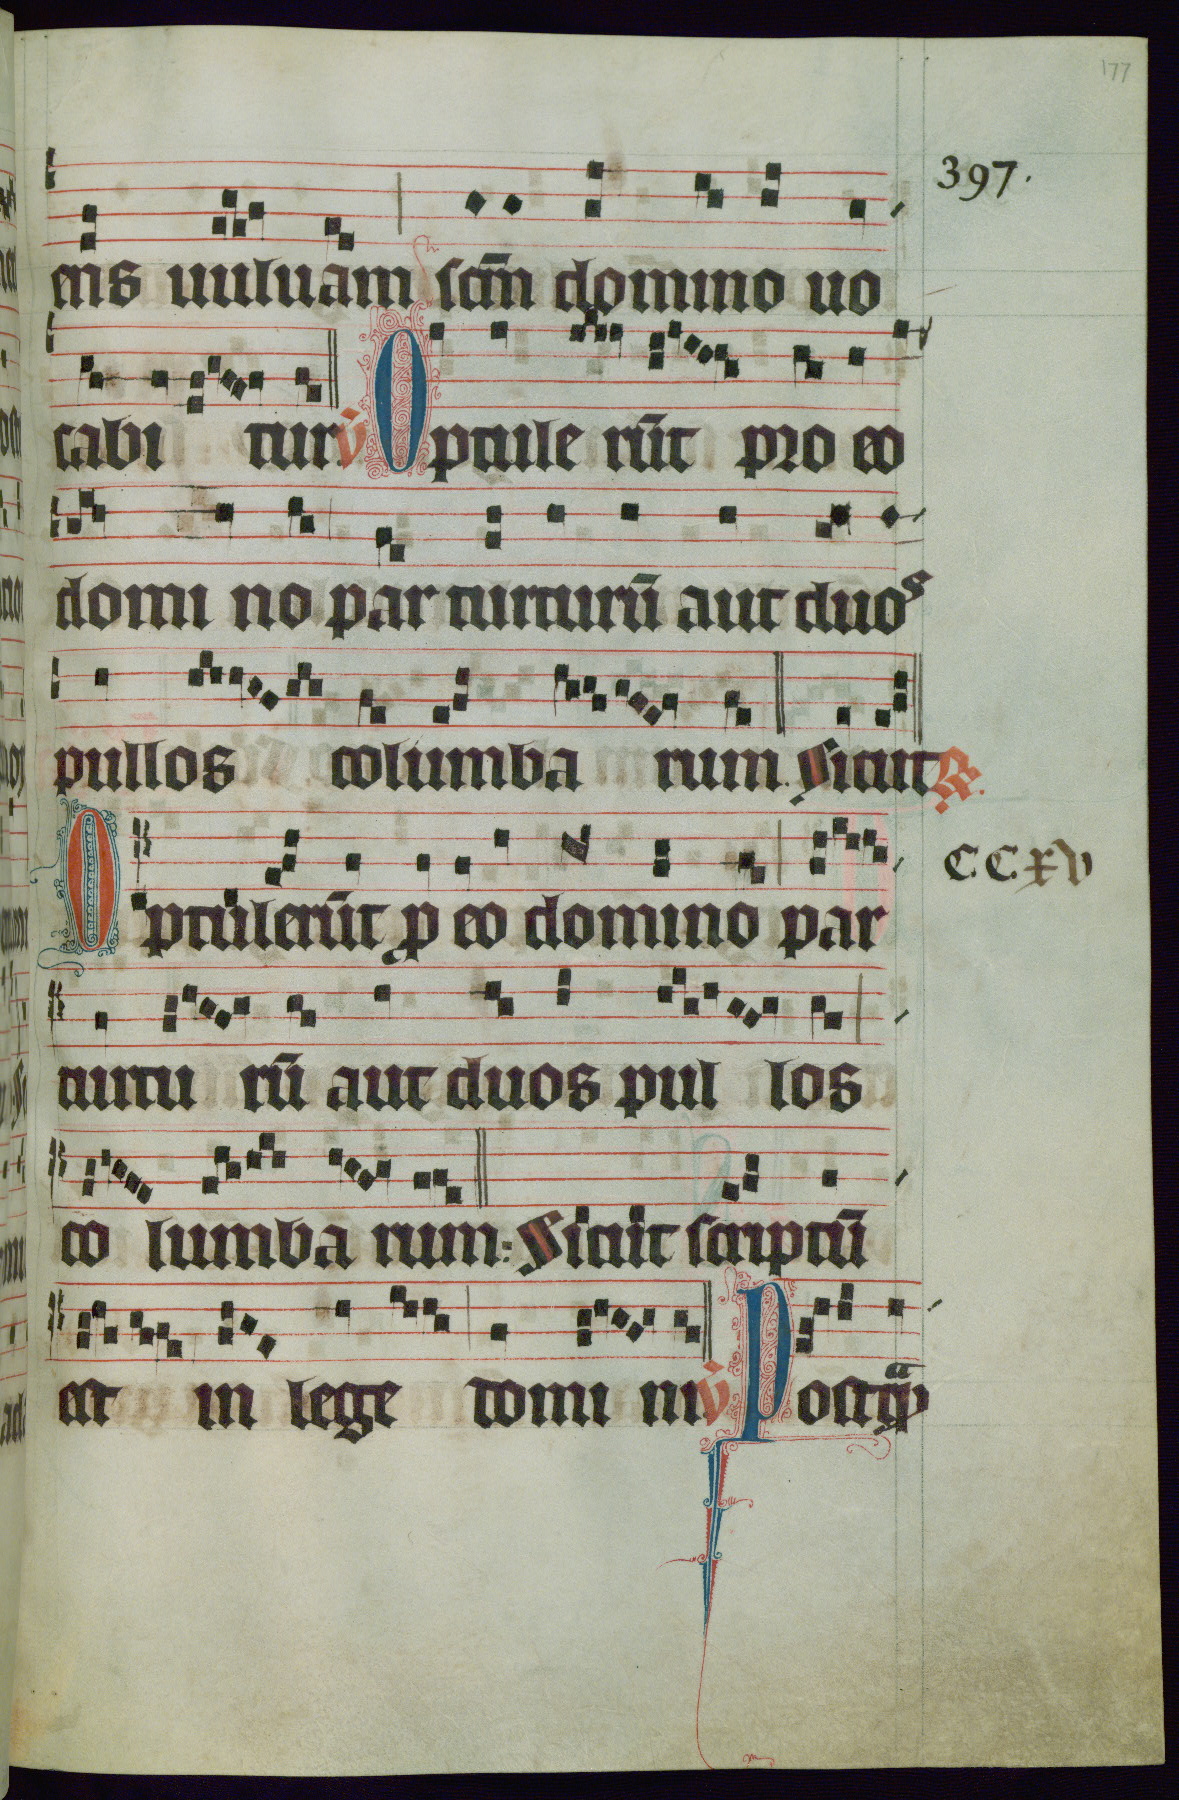 177
397.
ens uuluam scm̄ domino uo
cabi tur v̄ Optule rūt pro eo
domi no par turturū aut duos
pullos columba rum. Sicut ℟.
CC.xv
Optulerūt ꝓ eo domino par
turtu rū aut duos pul los
co lumba rum: Sicut scriptū
est in lege domi ni v̄ Postqᷓ